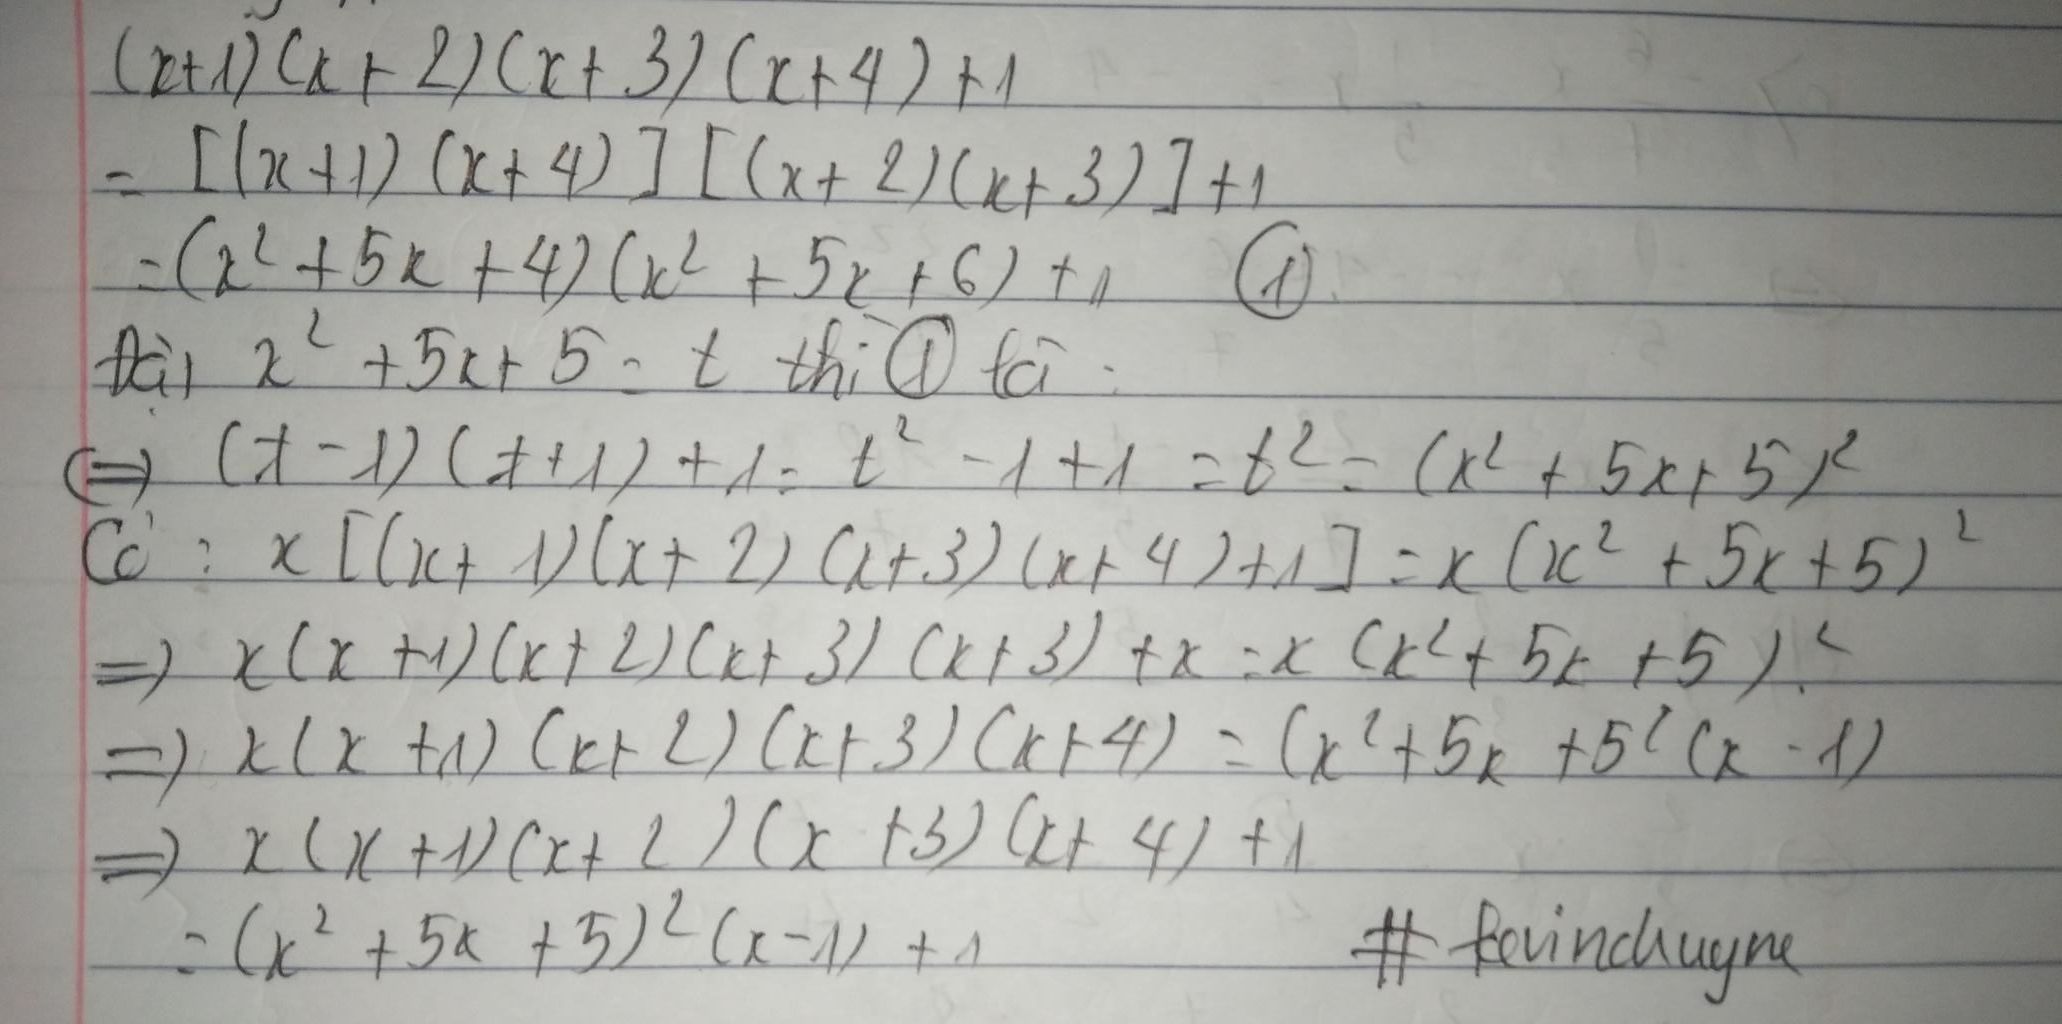 (x+1)(x+2)(x+3)(x+4)+1
= [(x+1)(x+4)][(x+2)(x+3)]+1
=(x²+5x+4)(x²+5x+6)+1 ①
x²+5x+5=t thì ①
⇔ (t-1)(t+1)+1=t²-1+1=t²=(x²+5x+5)²
Có: x[(x+1)(x+2)(x+3)(x+4)+1]=x(x²+5x+5)²
⇒ x(x+1)(x+2)(x+3)(x+3)+x=x(x²+5x+5)²
⇒ x(x+1)(x+2)(x+3)(x+4)=(x²+5x+5²(x-1)
⇒ x(x+1)(x+2)(x+3)(x+4)+1
=(x²+5x+5)²(x-1)+1 # kevinchuyne